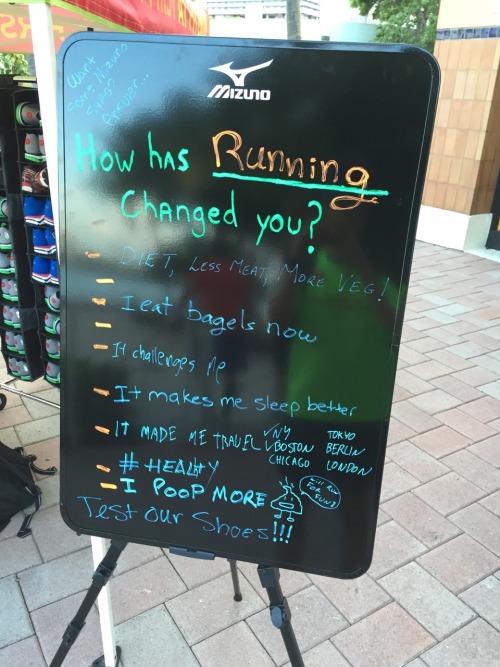 Want
Some Mizuno
Swag?
Answer...
MIZUNO
How has Running
Changed you?
- DIET, LESS MEAT, MORE VEG!
-
- I eat bagels now
-
- It challenges Me
- It makes me sleep better
- IT MADE ME TRAVEL ✓NY TOKYO
✓BOSTON BERLIN
CHICAGO LONDON
- # HEALTHY
- I POOP MORE
Will Run
FOR FUN!
Test our Shoes!!!